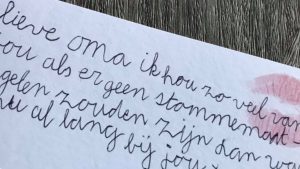 lieve oma ik hou zo veel van
jou als er geen stammemant
gelen zouden zijn dan wa
nu al lang bij jou